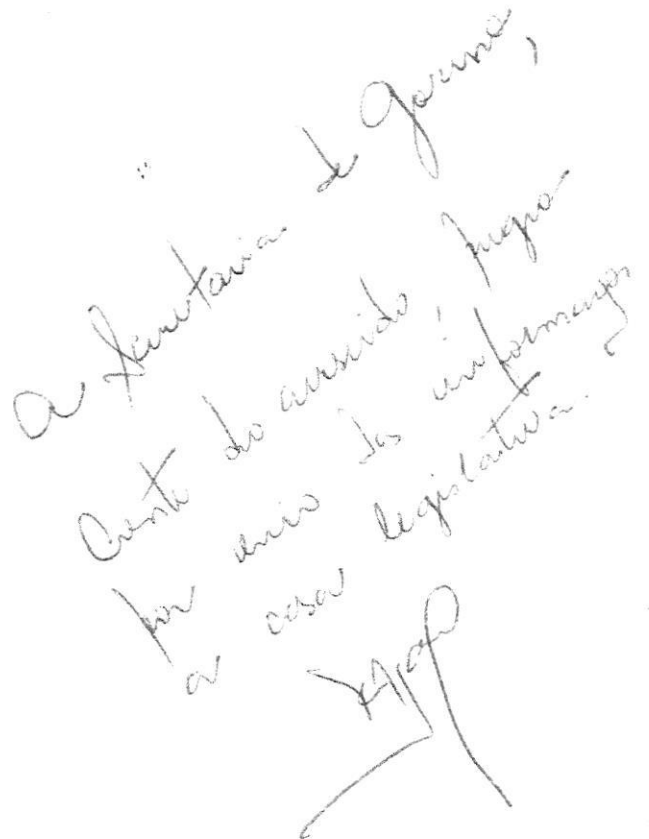 a Secretaria de Governo,
Ciente do
por envio das informações
a casa legislativa.